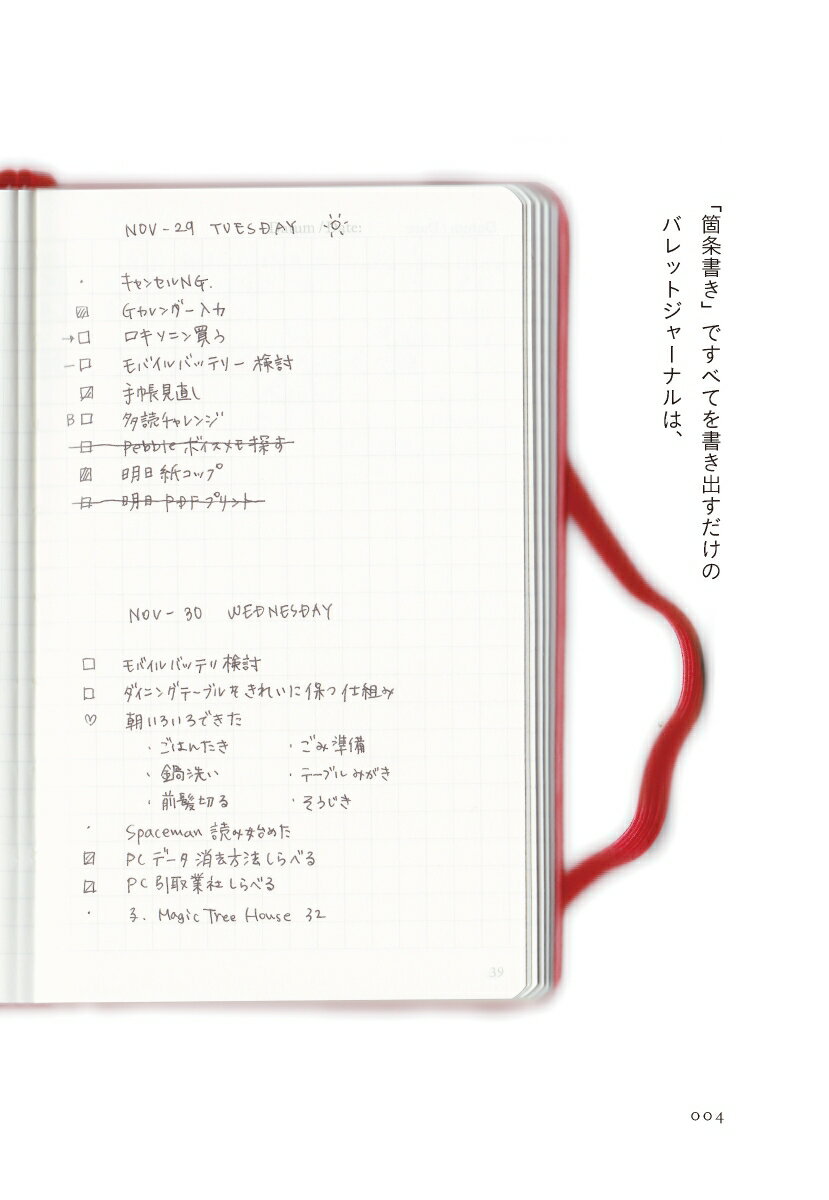 「箇条書き」ですべてを書き出すだけの
バレットジャーナルは、
NOV-29 TUESDAY
・ キャンセルNG.
Gカレンダー入力
→□ ロキソニン買う
-□ モバイルバッテリー検討
手帳見直し
B□ 多読チャレンジ
□ Pebble ボイスメモ探す
明日 紙コップ
□ 明日 PDFプリント
NOV-30 WEDNESDAY
□ モバイルバッテリ検討
□ ダイニングテーブルをきれいに保つ仕組み
♡ 朝いろいろできた
・ごはんたき ・ごみ準備
・鍋洗い ・テーブルみがき
・前髪切る ・そうじき
・ Spaceman 読み始めた
PCデータ消去方法しらべる
PC引取業社しらべる
・ 子. Magic Tree House 32
39
004